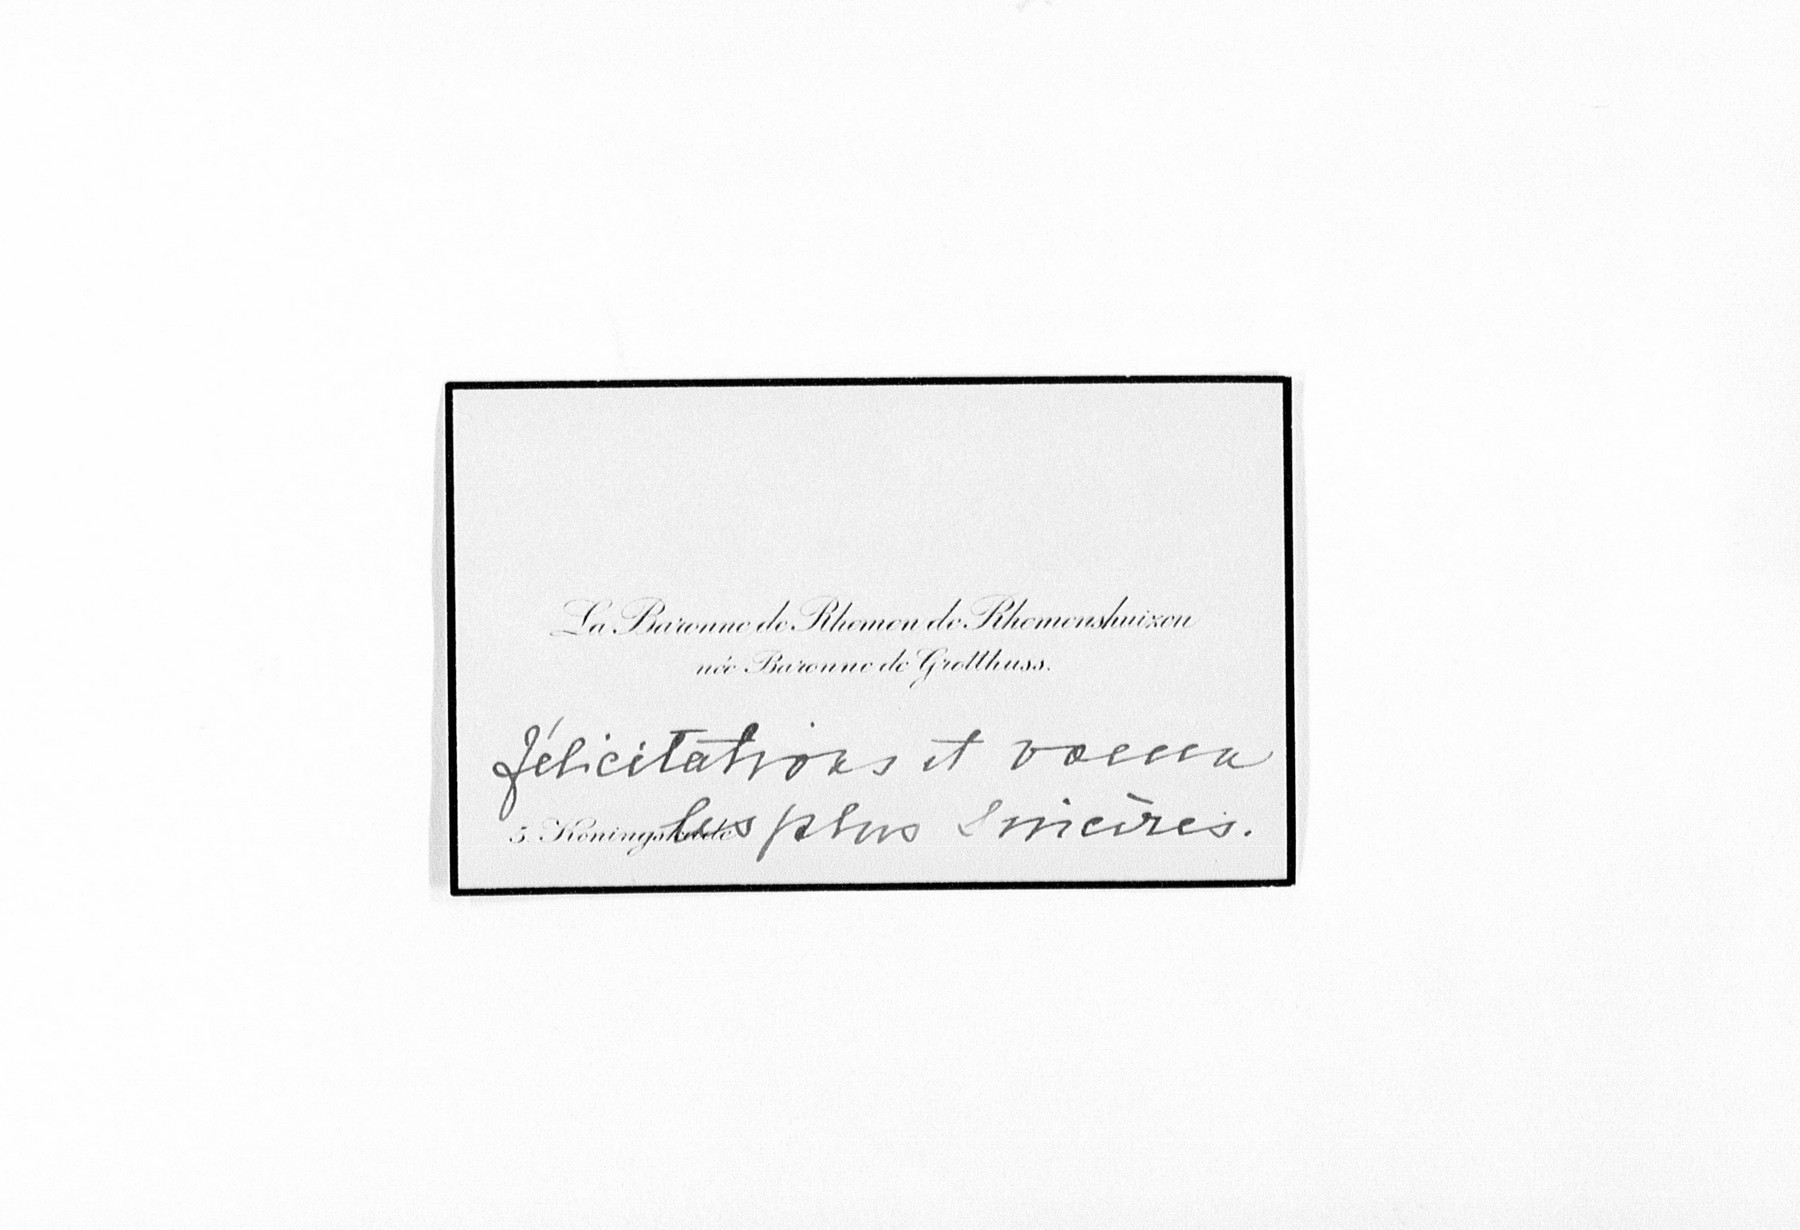 La Baronne de Rhemen de Rhemenshuizen
née Baronne de Grotthuss.
félicitations et voeux
les plus sincères.
5. Koningskade